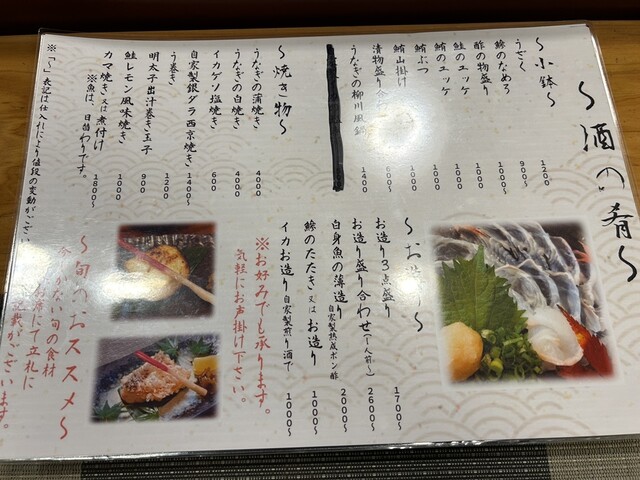 〜酒の肴〜
〜小鉢〜
うざく 1200
鯵のなめろ 900〜
酢の物盛り 1000
鮭のユッケ 1000
鮪のユッケ 1000
鮪ぶつ 1000
鮪山掛け 1000
漬物盛り合 600〜
うなぎの柳川風鍋 1400
〜焼き物〜
うなぎの蒲焼き 4000
うなぎの白焼き 4000
イカゲソ塩焼き 600
自家製銀ダラ西京焼き 1400〜
う巻き 1200
明太子出汁巻き玉子 900
鮭レモン風味焼き 1000
カマ焼き又は煮付け 1800〜
※魚は、日替わりです。
※「〜」表記は仕入れにより値段の変動がござい
〜お造り〜
お造り3点盛り 1700〜
お造り盛り合わせ(一人前) 2600〜
白身魚の薄造り 自家製熟成ポン酢 2000〜
鯵のたたき又はお造り 1000〜
イカお造り 自家製煎り酒で 1000〜
※お好みでも承ります。
気軽にお声掛け下さい。
〜旬のおススメ〜
今しかない旬の食材
席にて立札に
記載がございます。